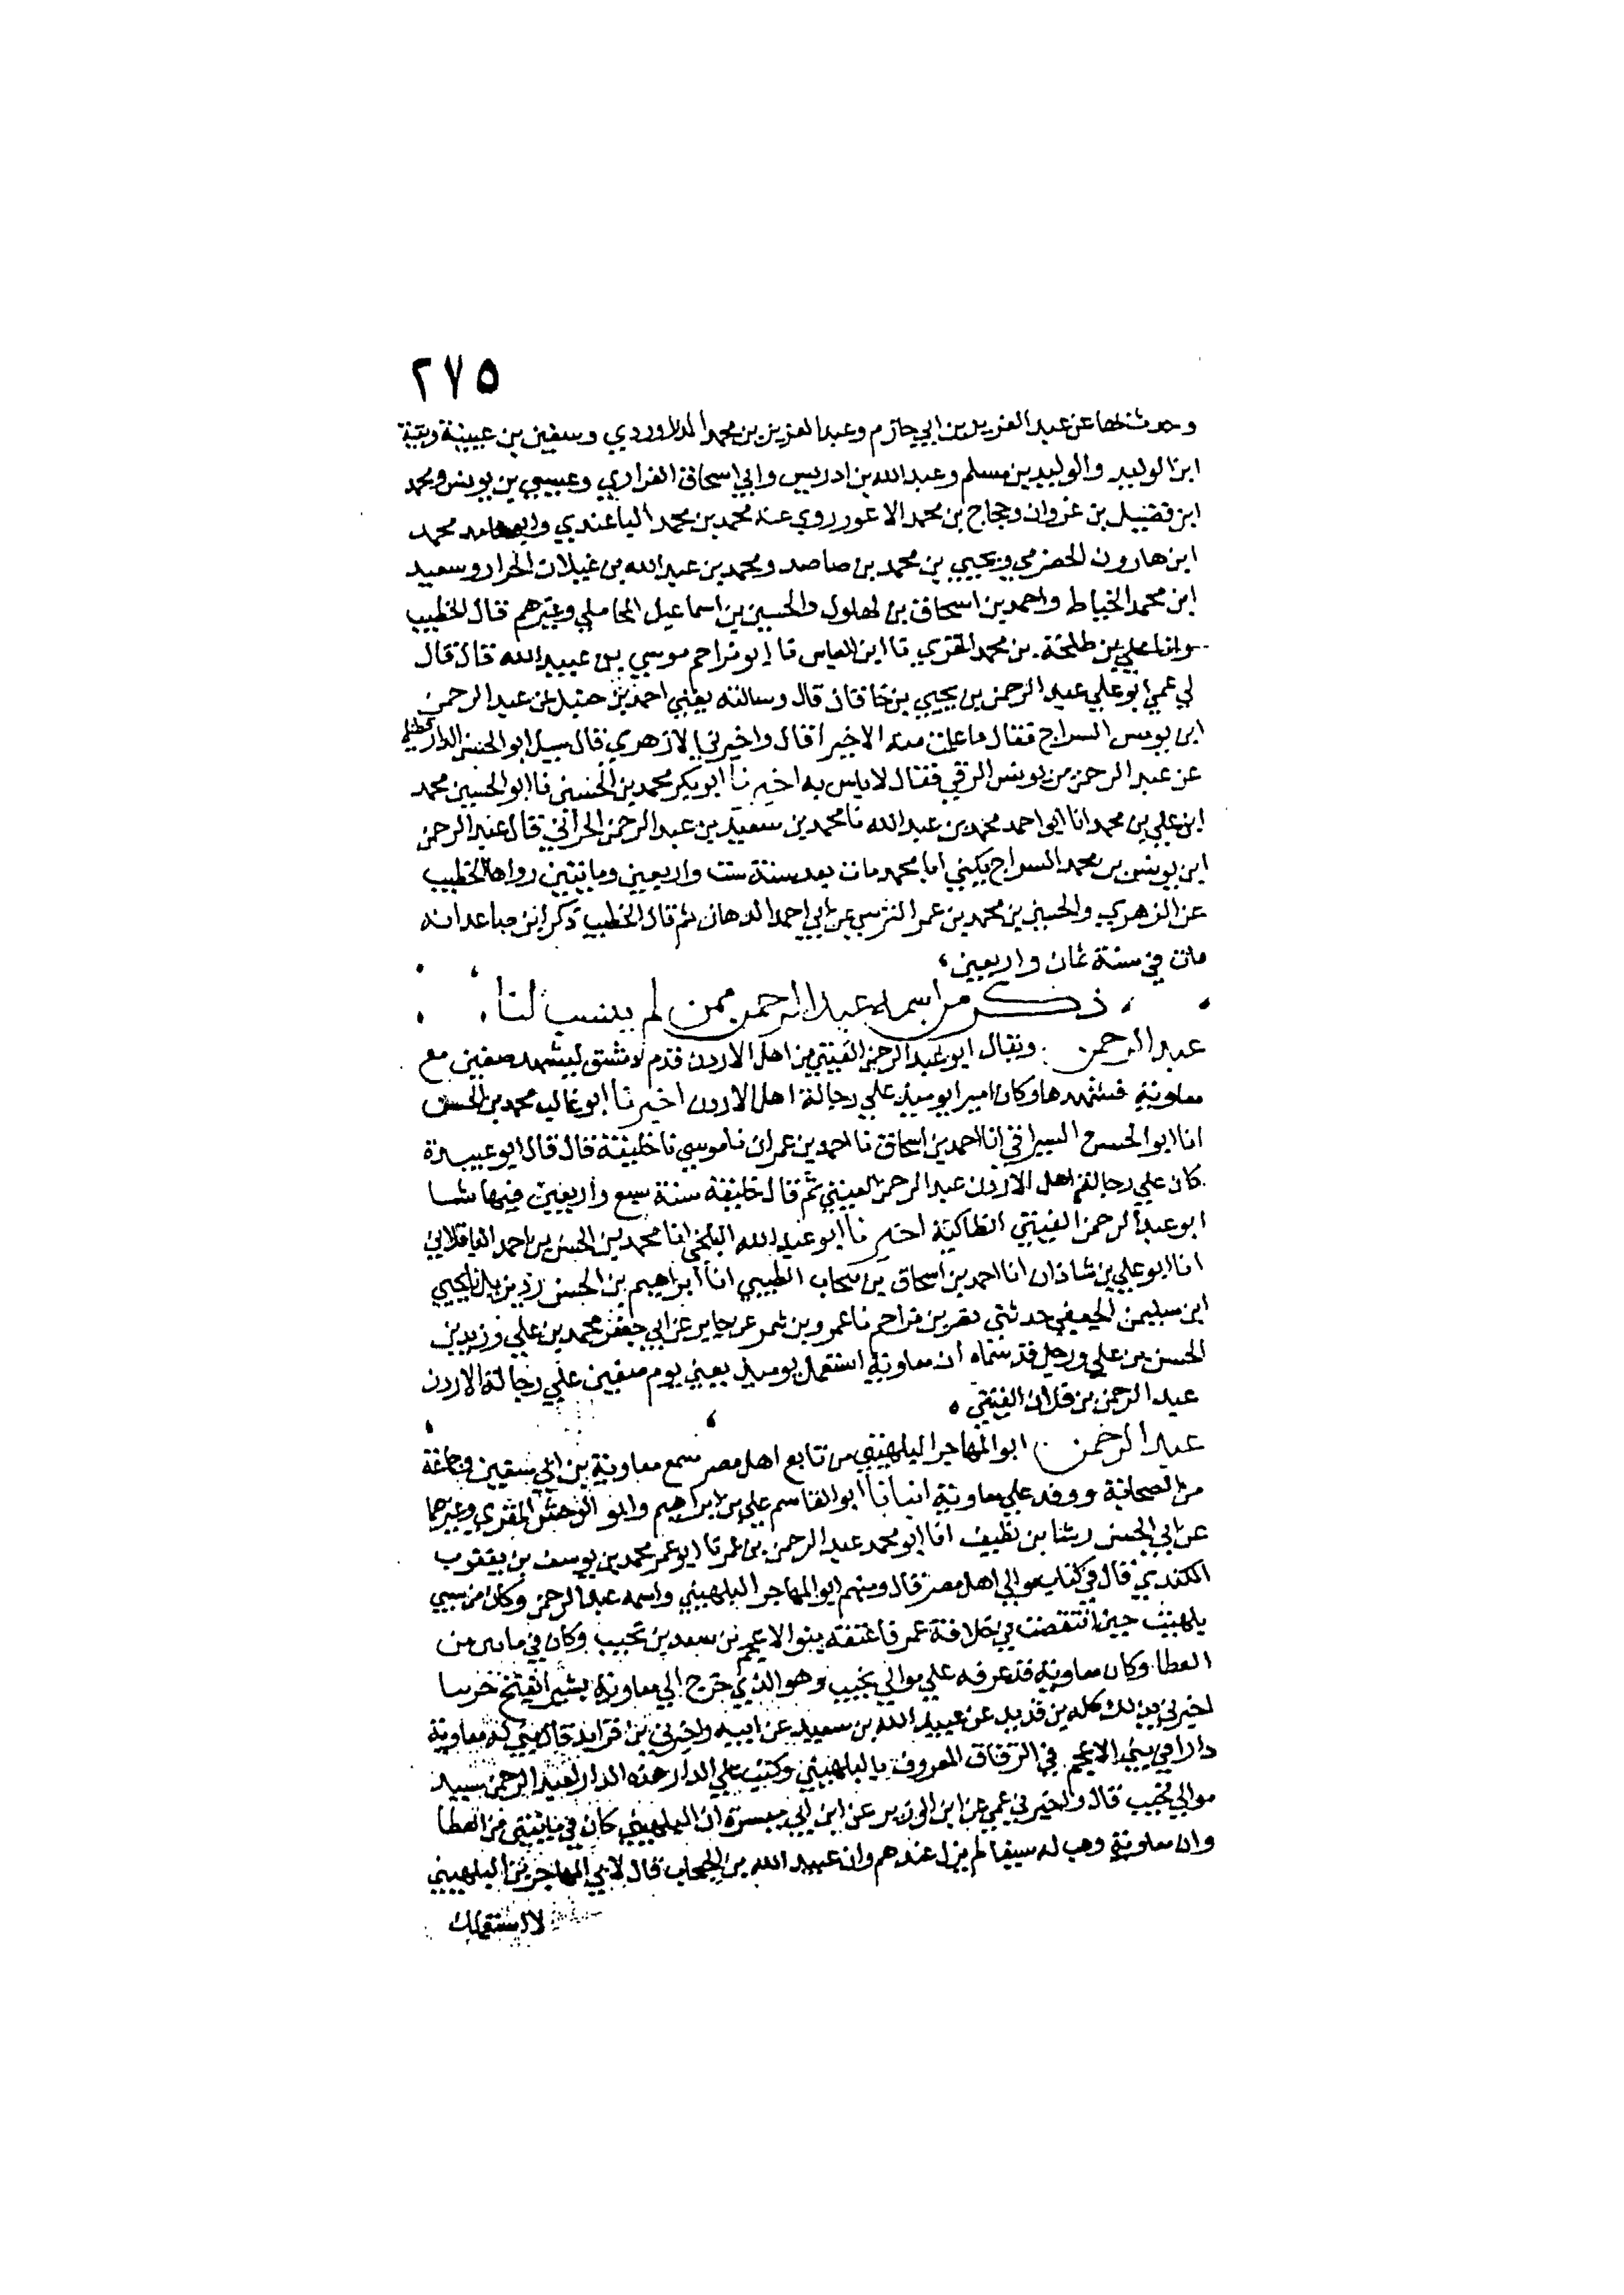 ٢٧٥
وحدث بها عن عبد العزيز بن ابي حازم وعبد العزيز بن محمد الدراوردي وسفين بن عيينة وبقية
ابن الوليد والوليد بن مسلم وعبد الله بن ادريس وابي اسحاق الفزاري وعيسي بن يونس ومحمد
ابن فضيل بن غزوان وحجاج بن محمد الاعور روي عنه محمد بن محمد الباغندي وابو حامد محمد
ابن هارون الحضرمي ويحيي بن محمد بن صاعد ومحمد بن عبد الله بن غيلان الخزاز وسعيد
ابن محمد الخياط واحمد بن اسحاق بن بهلول والحسين بن اسماعيل المحاملي وغيرهم قال الخطيب
وانا علي بن طلحة بن محمد المقري نا ابن العباس نا ابو مزاحم موسي بن عبيد الله قال قال
لي عمي ابو علي عبد الرحمن بن يحيي بن خاقان قال وسالته يعني احمد بن حنبل عن عبد الرحمن
ابن يونس السراج فقال ما علمت منه الا خيرا قال واخبرني الازهري قال سيل ابو الحسن الدارقطني
عن عبد الرحمن بن يونس الرقي فقال لا باس به اخبرنا ابو بكر محمد بن الحسن نا ابو الحسين محمد
ابن علي بن محمد انا ابو احمد محمد بن عبد الله نا محمد بن سعيد بن عبد الرحمن الحراني قال عبد الرحمن
ابن يونس بن محمد السراج يكني ابا محمد مات بعد سنة ست واربعين ومايتين رواها الخطيب
عن الزهري والحسين بن محمد بن عمر النرسي عن ابي احمد الدهان ثم قال الخطيب ذكر ابن صاعد انه
مات في سنة ثمان واربعين
ذكر من اسمه عبد الرحمن ممن لم ينسب لنا
عبد الرحمن ويقال ابو عبد الرحمن القيني من اهل الاردن قدم دمشق ليشهد صفين مع
معاوية فشهدها وكان اميرا يوميذ علي رجالة اهل الاردن اخبرنا ابو غالب محمد بن الحسن
انا ابو الحسن السيرافي انا احمد بن اسحاق نا احمد بن عمران نا موسي نا خليفة قال قال ابو عبيدة
كان علي رجالة اهل الاردن عبد الرحمن القيني ثم قال خليفة سنة سبع واربعين فيها شتا
ابو عبد الرحمن القيني انطاكية اخبرنا ابو عبد الله البلخي انا محمد بن الحسن بن احمد الباقلاني
انا ابو علي بن شاذان انا احمد بن اسحاق بن نيخاب الطيبي انا ابراهيم بن الحسن نا يحيي
ابن سليمن الجعفي حدثني نصر بن مزاحم نا عمرو بن شمر عن جابر عن ابي جعفر محمد بن علي وزيد بن
الحسن بن علي ورجل قد سماه ان معاوية استعمل يوميذ يعني يوم صفين علي رجالة الاردن
عبد الرحمن بن فلان القيني
عبد الرحمن ابو المهاجر البلهيبي من تابع اهل مصر سمع معاوية بن ابي سفين وجماعة
من الصحابة ووفد علي معاوية انبانا ابو القاسم علي بن ابراهيم وابو الوحش المقري وغيرهما
عن ابي الحسن رشا بن نظيف انا ابو محمد عبد الرحمن بن عمر نا ابو عمر محمد بن يوسف بن يعقوب
الكندي قال في كتاب موالي اهل مصر قال ومنهم ابو المهاجر البلهيبي واسمه عبد الرحمن وكان من سبي
بلهيب حين انتقضت في خلافة عمر فاعتقه بنو الاعجم بن سعد بن تجيب وكان في ماتين من
العطا وكان معاوية قد عرفه علي موالي تجيب وهو الذي خرج الي معاوية بشيرا بفتح خربتا
اخبرني بذلك كله بن قديد عن عبيد الله بن سعيد عن ابيه واخبرني بن قديد قال بني له معاوية
دارا في بني الاعجم في الزقاق المعروف بالبلهيبي وكتب علي الدار هذه الدار لعبد الرحمن سيد
موالي تجيب قال واخبرني عمي عن ابن الوزير عن ابن ابي ميسرة ان البلهيبي كان في مايتين من العطا
وان معاوية وهب له سيفا لم يزل عندهم وان عبيد الله بن الحبحاب قال لابي المهاجر بن البلهيبي
لا استعملك